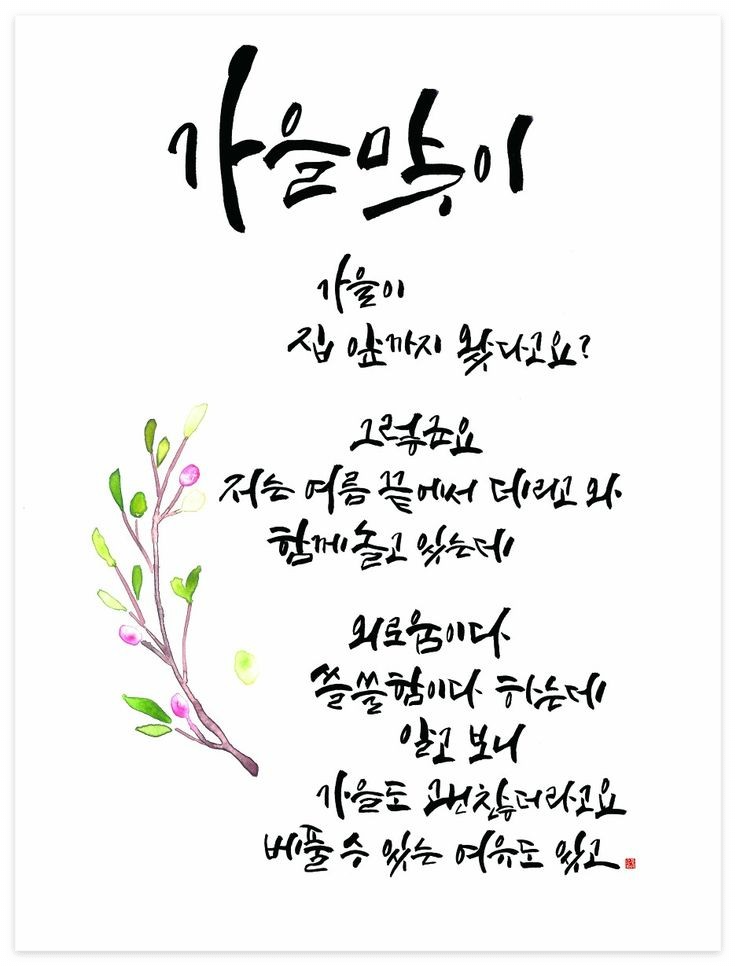 가을맞이
가을이
집 앞까지 왔다고요?
그렇군요
저는 여름 끝에서 데리고 와
함께 놀고 있는데
외로움이다
쓸쓸함이다 하는데
알고 보니
가을도 괜찮더라고요
베풀 수 있는 여유도 있고